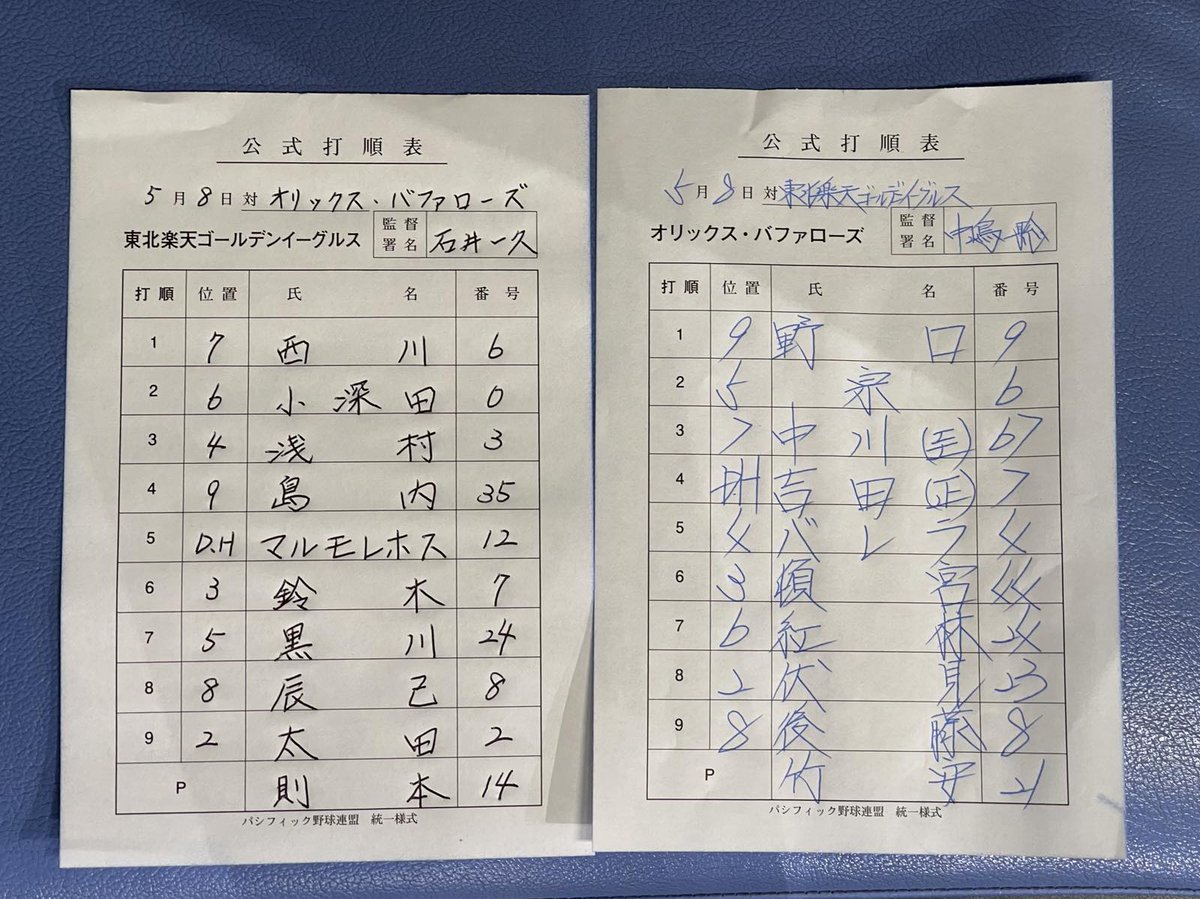 公式打順表
5月8日 対 オリックス・バファローズ
東北楽天ゴールデンイーグルス 監督署名 石井一久
打順 位置 氏名 番号
1 7 西川 6
2 6 小深田 0
3 4 浅村 3
4 9 島内 35
5 D.H マルモレホス 12
6 3 鈴木 7
7 5 黒川 24
8 8 辰己 8
9 2 太田 2
P 則本 14
パシフィック野球連盟 統一様式
公式打順表
5月8日 対 東北楽天ゴールデイグルス
オリックス・バファローズ 監督署名 中嶋聡
打順 位置 氏名 番号
1 9 野口 9
2 5 宗 6
3 7 中川(圭) 67
4 DH 吉田(正) 7
5 4 バレラ 4
6 3 頓宮 44
7 6 紅林 24
8 2 伏見 23
9 8 後藤 8
P 竹安 21
パシフィック野球連盟 統一様式